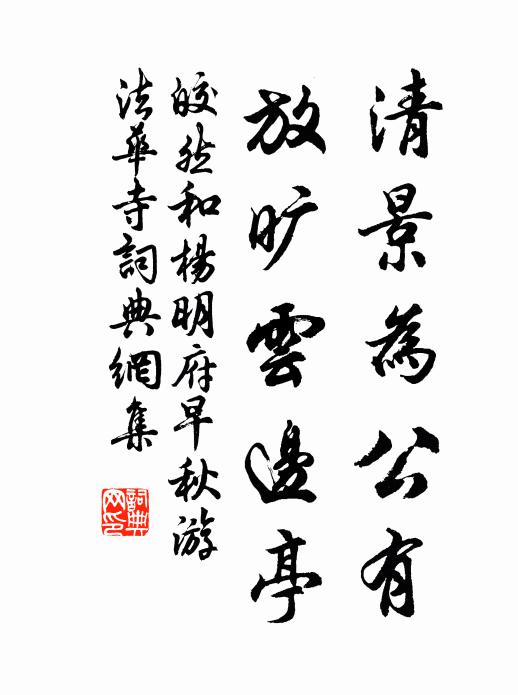 清景為公有
放旷雲邊亭
皎然和楊明府早秋游
法華寺詞典網集
詞典网印